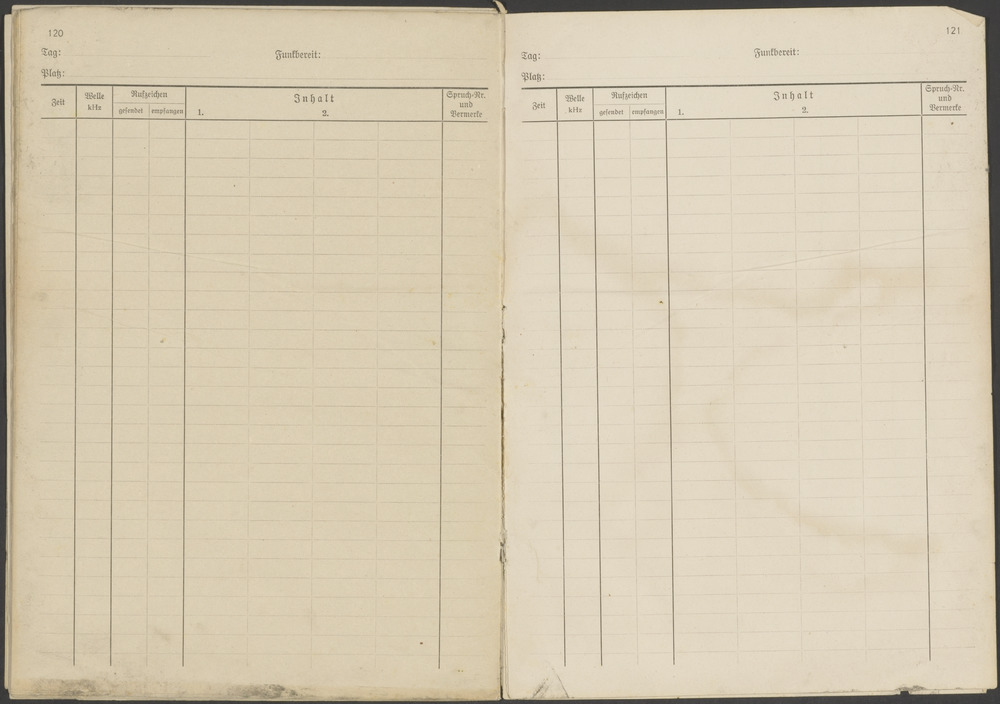 120
Tag:
Funkbereit:
Platz:
Zeit
Welle
kHz
Rufzeichen
gesendet
empfangen
Inhalt
1.
2.
Spruch-Nr.
und
Vermerke
121
Tag:
Funkbereit:
Platz:
Zeit
Welle
kHz
Rufzeichen
gesendet
empfangen
Inhalt
1.
2.
Spruch-Nr.
und
Vermerke